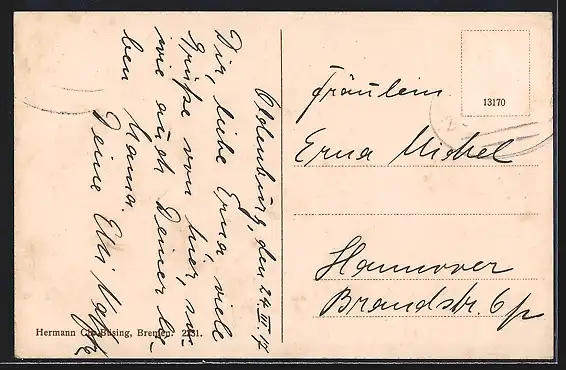 Oldenburg, den 24. III. 17
Dir, liebe Erna viele
Grüße von hier, so-
wie auch Deiner lie-
ben Mama.
Deine Elli
Fräulein
Erna Michel
Hannover
Brandstr. 6 p
13170
Hermann Chr. Büsing, Bremen. 2131.